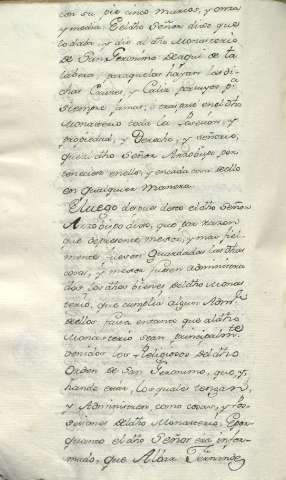 con su pie cinco marcos, y onza
y media. El dho Señor dixo que
lo daba, y dió al dho Monasterio
de San Geronimo de aqui de ta
labera, para que las hayan las di
chas Cruces, y Caliz para suyos pa
siempre jamas, é traspasó en el dho
Monasterio toda la Posesion, y
propiedad, y Derecho, y señorio,
que el dho Señor Arzobispo per
tenecia en ello, y en cada cosa de ello
en qualquier manera.
E luego despues desto el dho Señor
Arzobispo dixo, que por razon
que de presente mejor, y mas fiel
mente fuesen Guardadas las dhas
cosas, y mejor fuesen administra
dos los dhos bienes del dho Monas
terio, que cumplia algun Admor
dellos fasta en tanto que al dho
Monasterio sean principalmte
benidos los Religiosos del dho
Orden de San Geronimo, que y
han de estar, los quales tengan
y Administren como cosas, y Po
sesiones del dho Monasterio, E por
quanto el dho Señor era infor
mado, que Alvar Fernandez